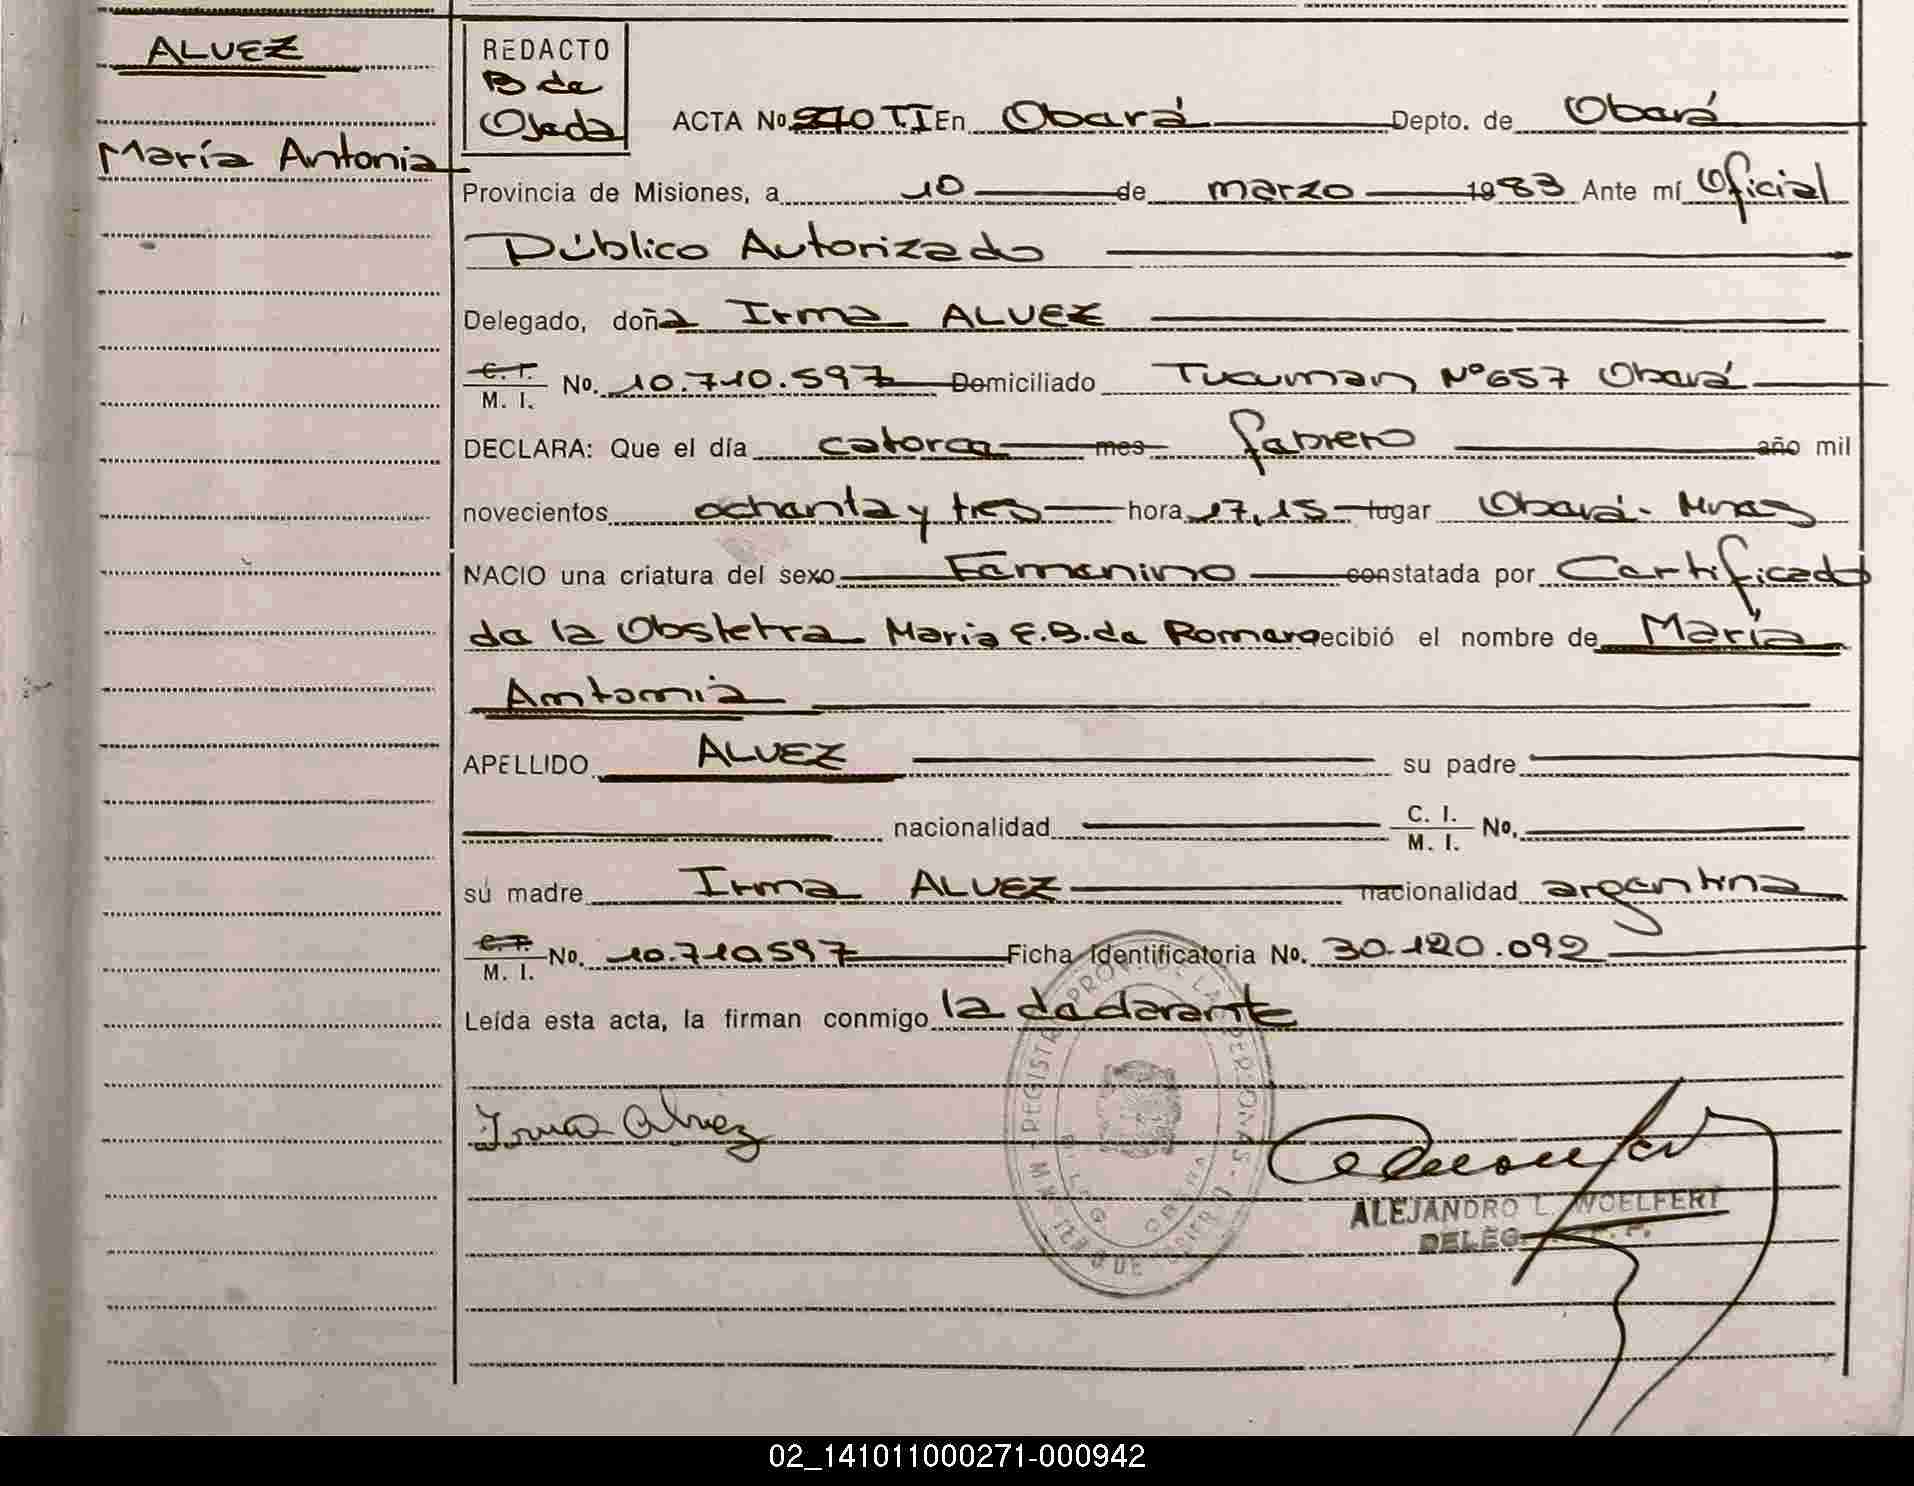 ALVEZ
María Antonia
REDACTO
B de
Ojeda
ACTA No. 270 TI En Oberá Depto. de Oberá
Provincia de Misiones, a 10 de marzo 1983 Ante mí Oficial
Público Autorizado
Delegado, doña Irma ALVEZ
C. I. / M. I. No. 10.710.597 Domiciliado Tucuman Nº 657 Oberá
DECLARA: Que el día catorce mes febrero año mil
novecientos ochenta y tres hora 17,15 lugar Oberá - Mnes
NACIO una criatura del sexo Femenino constatada por Certificado
de la Obstetra Maria E.B. de Romero recibió el nombre de María
Antonia
APELLIDO ALVEZ su padre
nacionalidad C. I. / M. I. No.
su madre Irma ALVEZ nacionalidad argentina
C. I. / M. I. No. 10.710597 Ficha Identificatoria No. 30.120.092
Leída esta acta, la firman conmigo la declarante
Irma Alvez
REGISTRO PROV. DE LAS PERSONAS - MINISTERIO DE GOBIERNO
OBERA
ALEJANDRO L. WOELFERT
DELEG
02_141011000271-000942